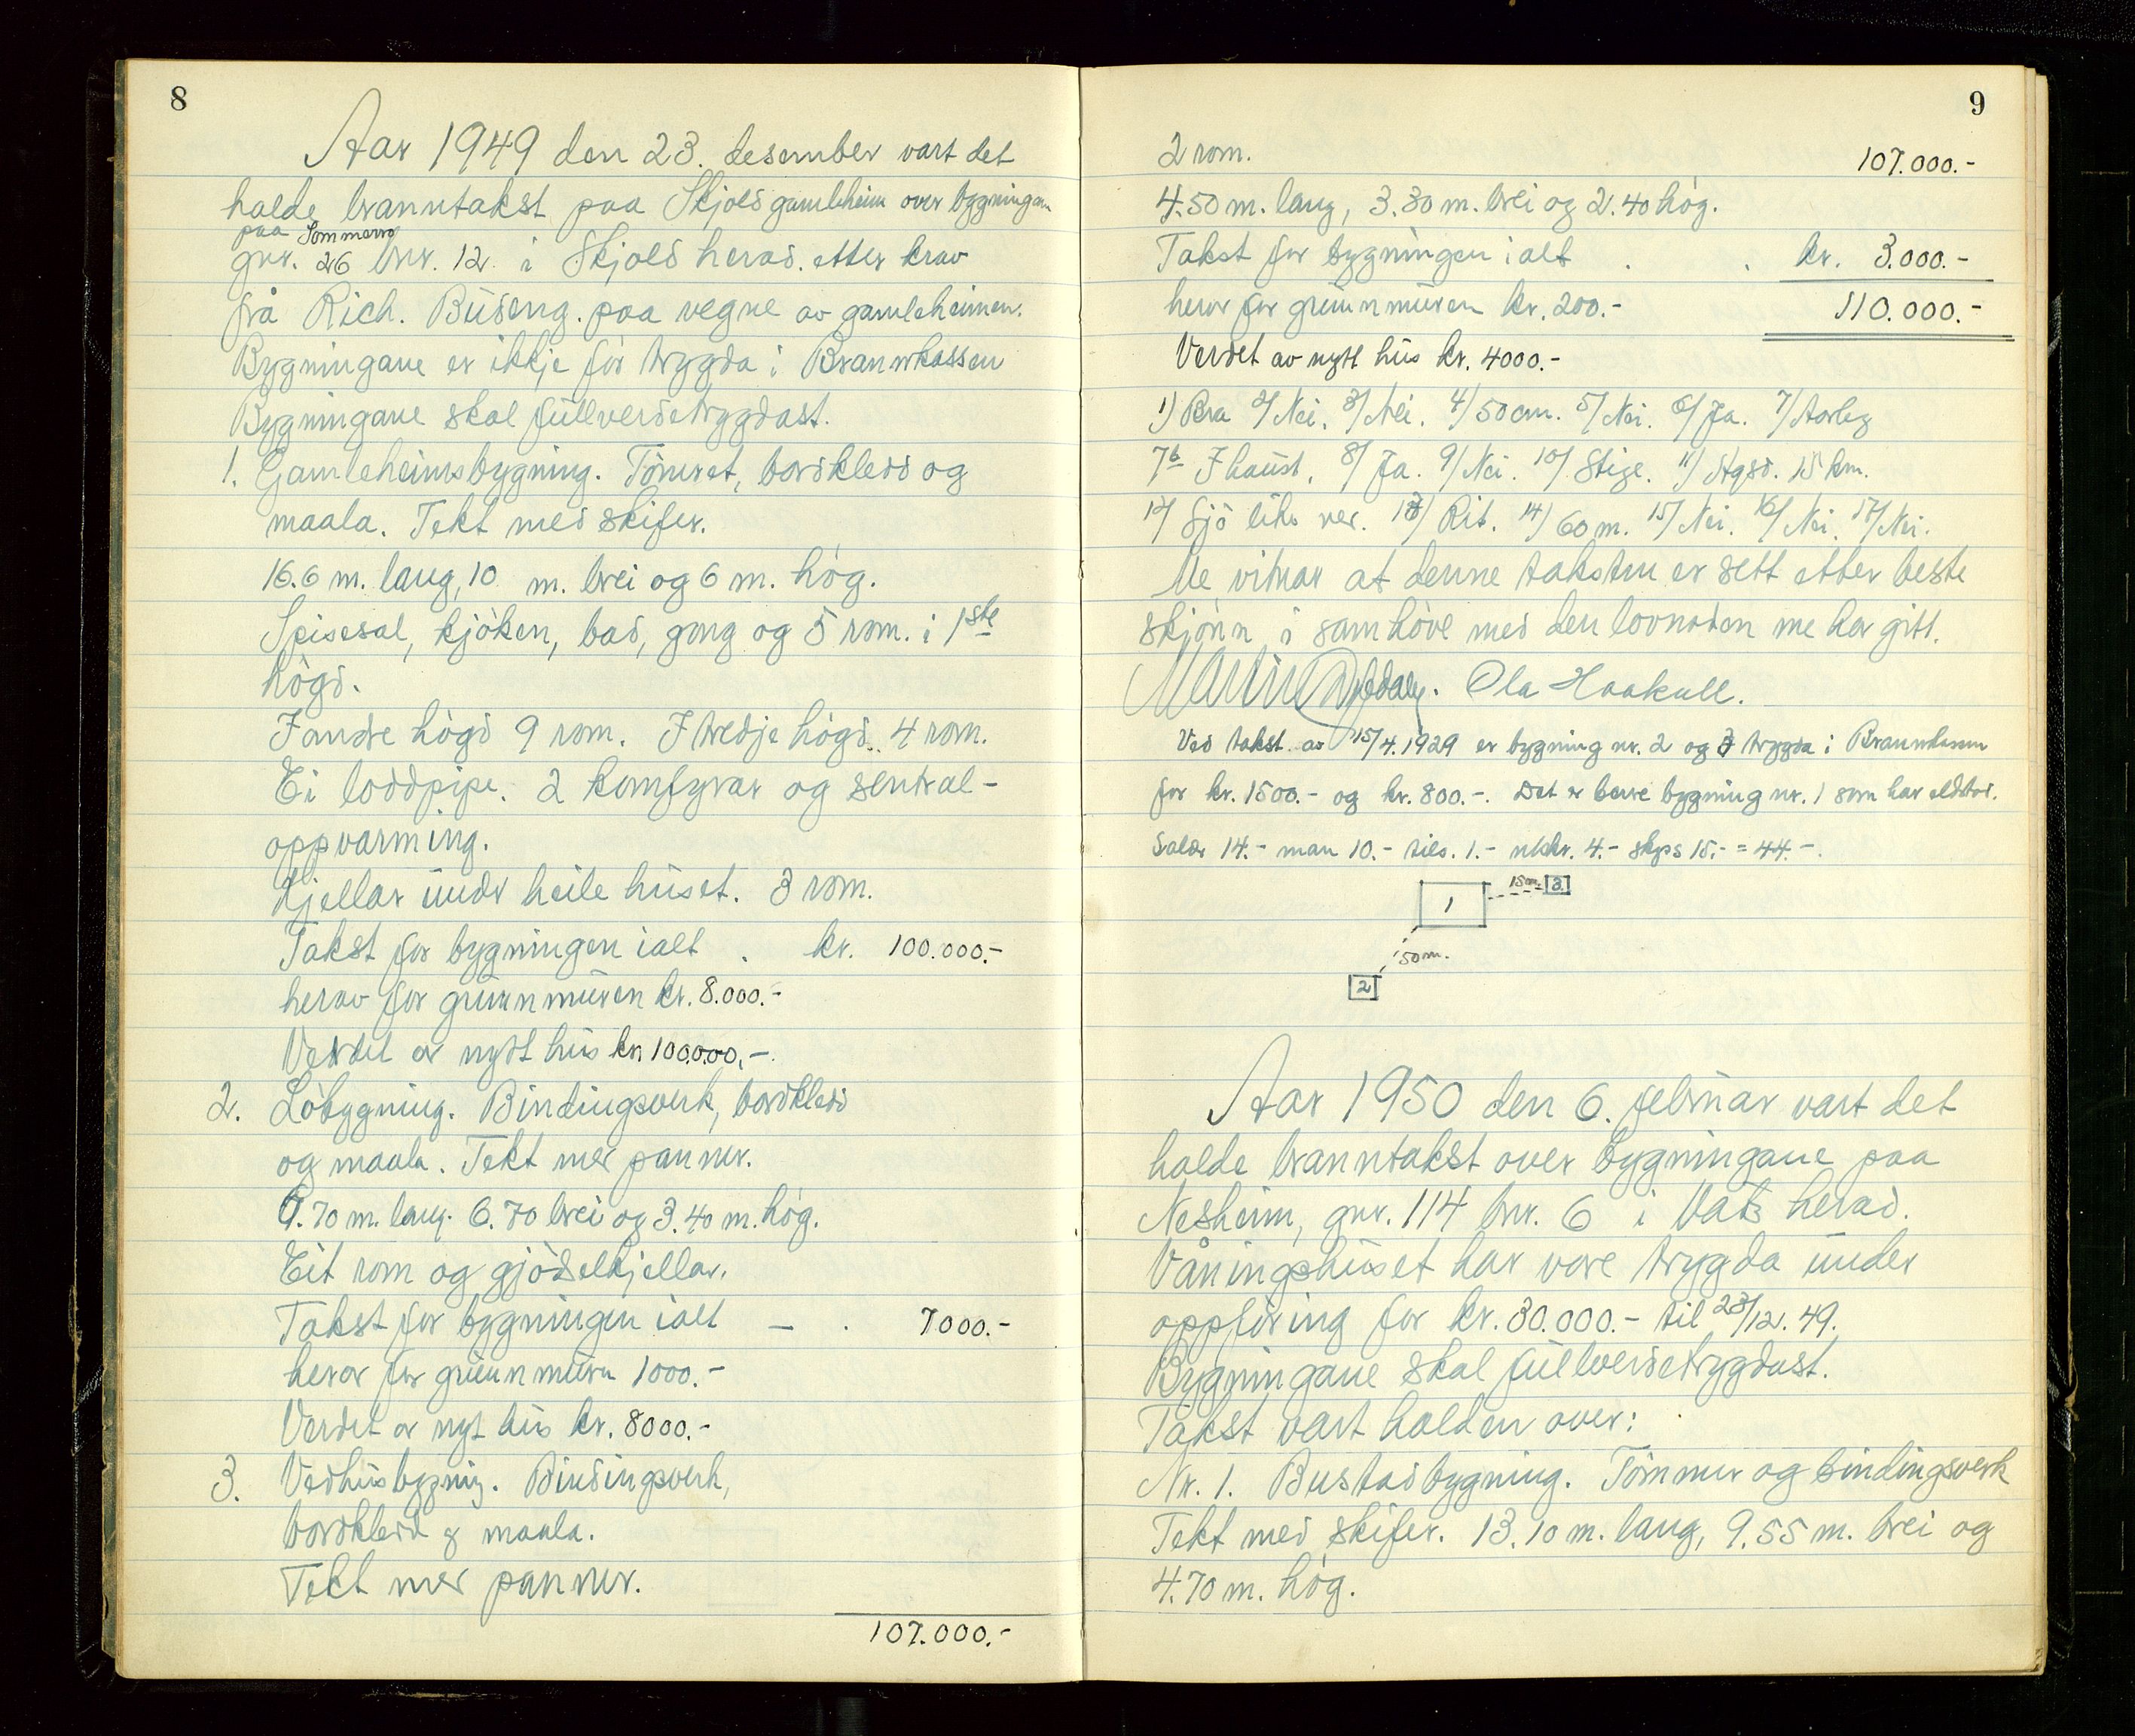 8
Aar 1949 den 23. desember vart det
halde branntakst paa Skjold gamleheim over bygningane
paa Sommerro
gnr. 26 bnr. 12 i Skjold herad. etter krav
frå Rich. Buseng. paa vegne av gamleheimen.
Bygningane er ikkje før trygda i Brannkassen
Bygningane skal fullverdetrygdast.
1. Gamleheimsbygning. Tømret, bordkledd og
maala. Tekt med skifer.
16.6 m. lang, 10 m. brei og 6 m. høg.
Spisesal, kjøken, bad, gang og 5 rom. i 1ste
høgd.
I andre høgd 9 rom. I tredje høgd. 4 rom.
Ei loddpipe. 2 komfyrar og sentral-
oppvarming.
Kjellar under heile huset. 3 rom.
Takst for bygningen ialt . kr. 100.000.-
herav for grunnmuren kr. 8.000.-
Verdet av nytt hus kr. 100.000,-.
2. Løbygning. Bindingsverk, bordkledd
og maala. Tekt med panner.
9.70 m. lang. 6.70 brei og 3.40 m. høg.
Eit rom og gjødselkjellar.
Takst for bygningen ialt - . 7000.-
herav for grunnmuren 1000.-
Verdet av nyt hus kr. 8000.-
3. Vedhusbygning. Bindingsverk,
bordkledd og maala.
Tekt med panner.
107.000.-
9
2 rom. 107.000.-
4.50 m. lang, 3.30 m. brei og 2.40 høg.
Takst for bygningen ialt . . kr. 3.000.-
herav for grunnmuren kr. 200.- 110.000.-
Verdet av nytt hus kr. 4000.-
1) Bra 2/ Nei. 3/ Nei. 4/ 50 cm. 5/ Nei. 6/ Ja. 7/ Aarleg
7b I haust. 8/ Ja. 9/ Nei. 10/ Stige. 11/ 15 km.
12/ Sjø like ved. 13/ 14/ 60 m. 15/ Nei. 16/ Nei. 17/ Nei.
Me vitnar at denne taksten er sett etter beste
skjønn i samhøve med den lovnaden me har gitt.
Ola Haakull.
Ved takst av 15/4.1929 er bygning nr. 2 og 3 trygda i Brannkassen
for kr. 1500.- og kr. 800.-. Det er berre bygning nr. 1 som har eldstad.
14.- man 10.- tils. 1.- utskr. 4.- skyss 15.- = 44.-.
1 15 m. 3
50 m.
2
Aar 1950 den 6. februar vart det
halde branntakst over bygningane paa
Nesheim, gnr. 114 bnr. 6 i Vats herad.
Våningshuset har vore trygda under
oppføring for kr. 30.000.- til 23/12. 49.
Bygningane skal fullverdetrygdast.
Takst vart halden over:
Nr. 1. Bustadbygning. Tømmer og bindingsverk
Tekt med skifer. 13.10 m. lang, 9.55 m. brei og
4.70 m. høg.